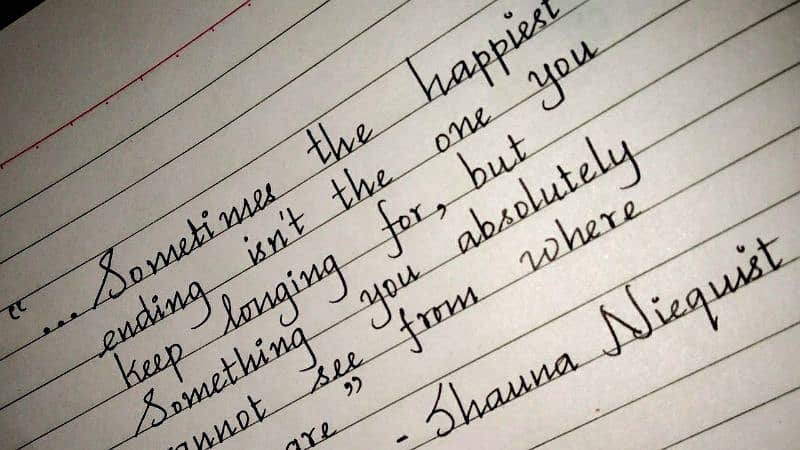 “ ... Sometimes the happiest
ending isn't the one you
keep longing for, but
Something you absolutely
cannot see from where
are ”
- Shauna Niequist